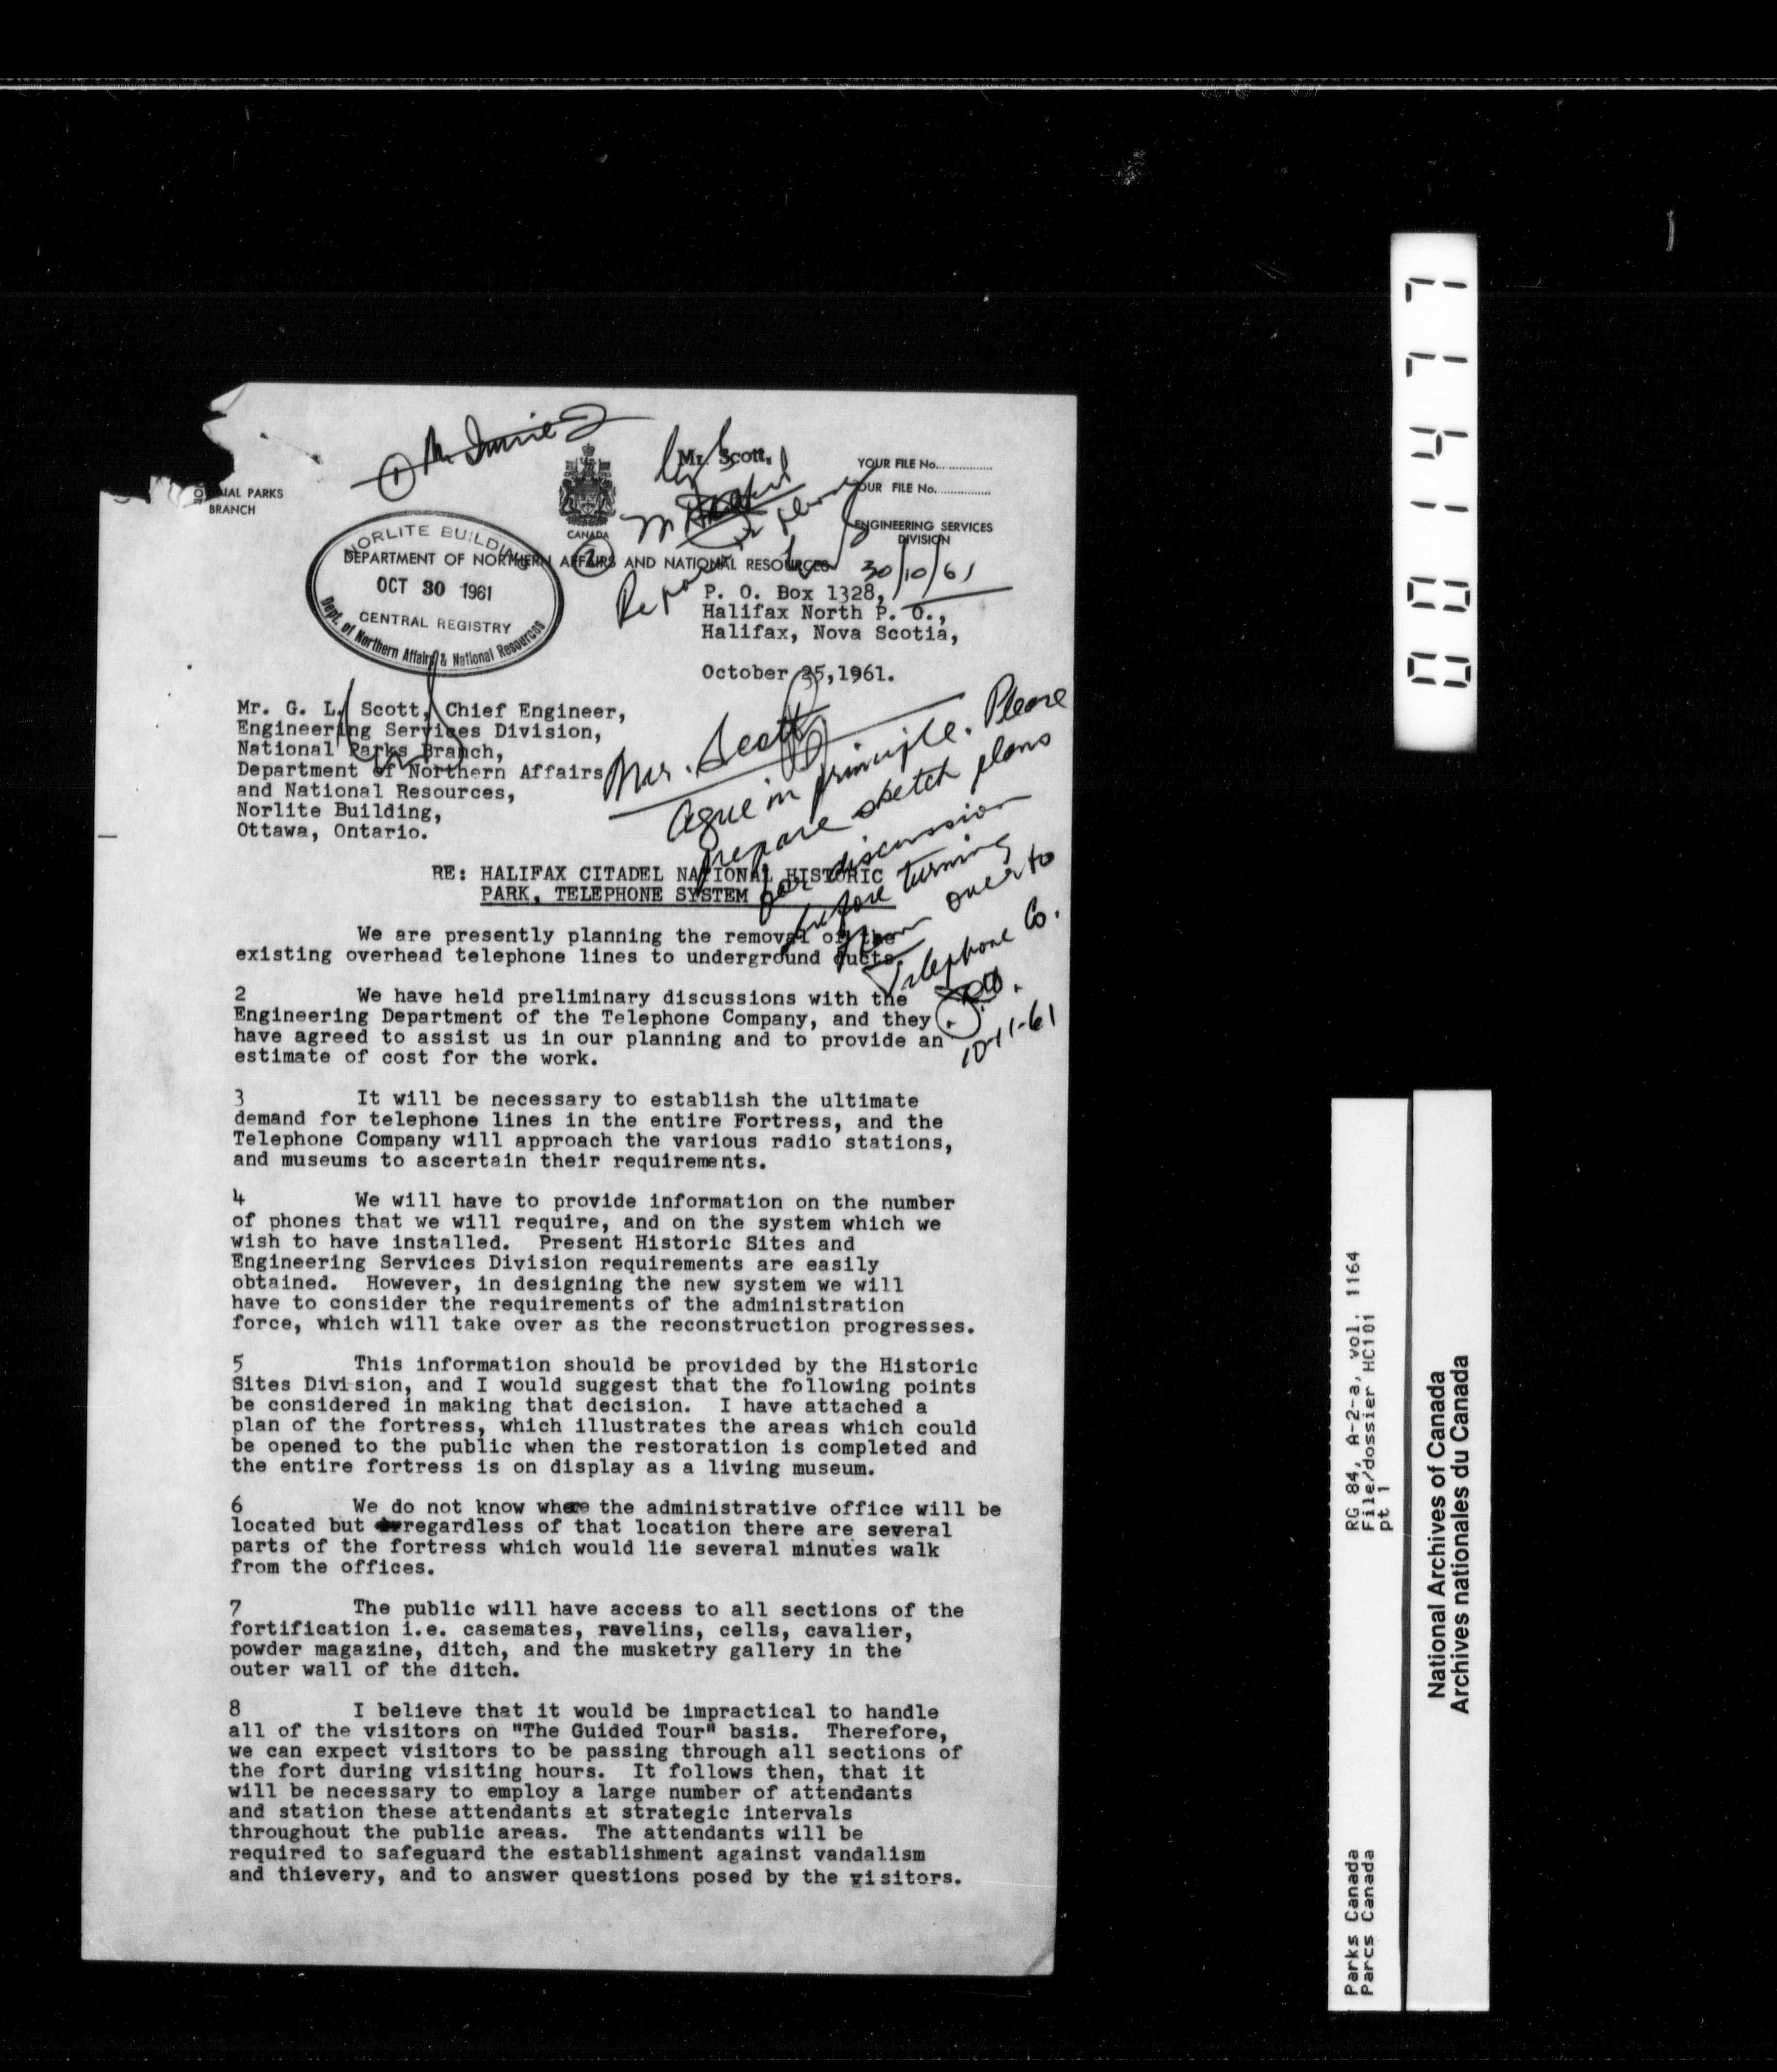 Mr. Scott,
YOUR FILE No...............
OUR FILE No...............
NATIONAL PARKS
BRANCH
CANADA
ENGINEERING SERVICES
DIVISION
NORLITE BUILDING
DEPARTMENT OF NORTHERN AFFAIRS AND NATIONAL RESOURCES
OCT 30 1961
CENTRAL REGISTRY
Dept. of Northern Affairs & National Resources
① 
②
30/10/61
P. O. Box 1328,
Halifax North P. O.,
Halifax, Nova Scotia,
October 25,1961.
Mr. G. L. Scott, Chief Engineer,
Engineering Services Division,
National Parks Branch,
Department of Northern Affairs
and National Resources,
Norlite Building,
Ottawa, Ontario.
Mr. Scott
Agree in principle. Please
prepare sketch plans
for discussion
before turning
them over to
Telephone Co.
10-11-61
RE: HALIFAX CITADEL NATIONAL HISTORIC
PARK, TELEPHONE SYSTEM
We are presently planning the removal of the
existing overhead telephone lines to underground ducts.
2 We have held preliminary discussions with the
Engineering Department of the Telephone Company, and they
have agreed to assist us in our planning and to provide an
estimate of cost for the work.
3 It will be necessary to establish the ultimate
demand for telephone lines in the entire Fortress, and the
Telephone Company will approach the various radio stations,
and museums to ascertain their requirements.
4 We will have to provide information on the number
of phones that we will require, and on the system which we
wish to have installed. Present Historic Sites and
Engineering Services Division requirements are easily
obtained. However, in designing the new system we will
have to consider the requirements of the administration
force, which will take over as the reconstruction progresses.
5 This information should be provided by the Historic
Sites Division, and I would suggest that the following points
be considered in making that decision. I have attached a
plan of the fortress, which illustrates the areas which could
be opened to the public when the restoration is completed and
the entire fortress is on display as a living museum.
6 We do not know where the administrative office will be
located but regardless of that location there are several
parts of the fortress which would lie several minutes walk
from the offices.
7 The public will have access to all sections of the
fortification i.e. casemates, ravelins, cells, cavalier,
powder magazine, ditch, and the musketry gallery in the
outer wall of the ditch.
8 I believe that it would be impractical to handle
all of the visitors on "The Guided Tour" basis. Therefore,
we can expect visitors to be passing through all sections of
the fort during visiting hours. It follows then, that it
will be necessary to employ a large number of attendants
and station these attendants at strategic intervals
throughout the public areas. The attendants will be
required to safeguard the establishment against vandalism
and thievery, and to answer questions posed by the visitors.
001477
Parks Canada RG 84, A-2-a, vol. 1164
Parcs Canada File/dossier HC101
pt 1
National Archives of Canada
Archives nationales du Canada